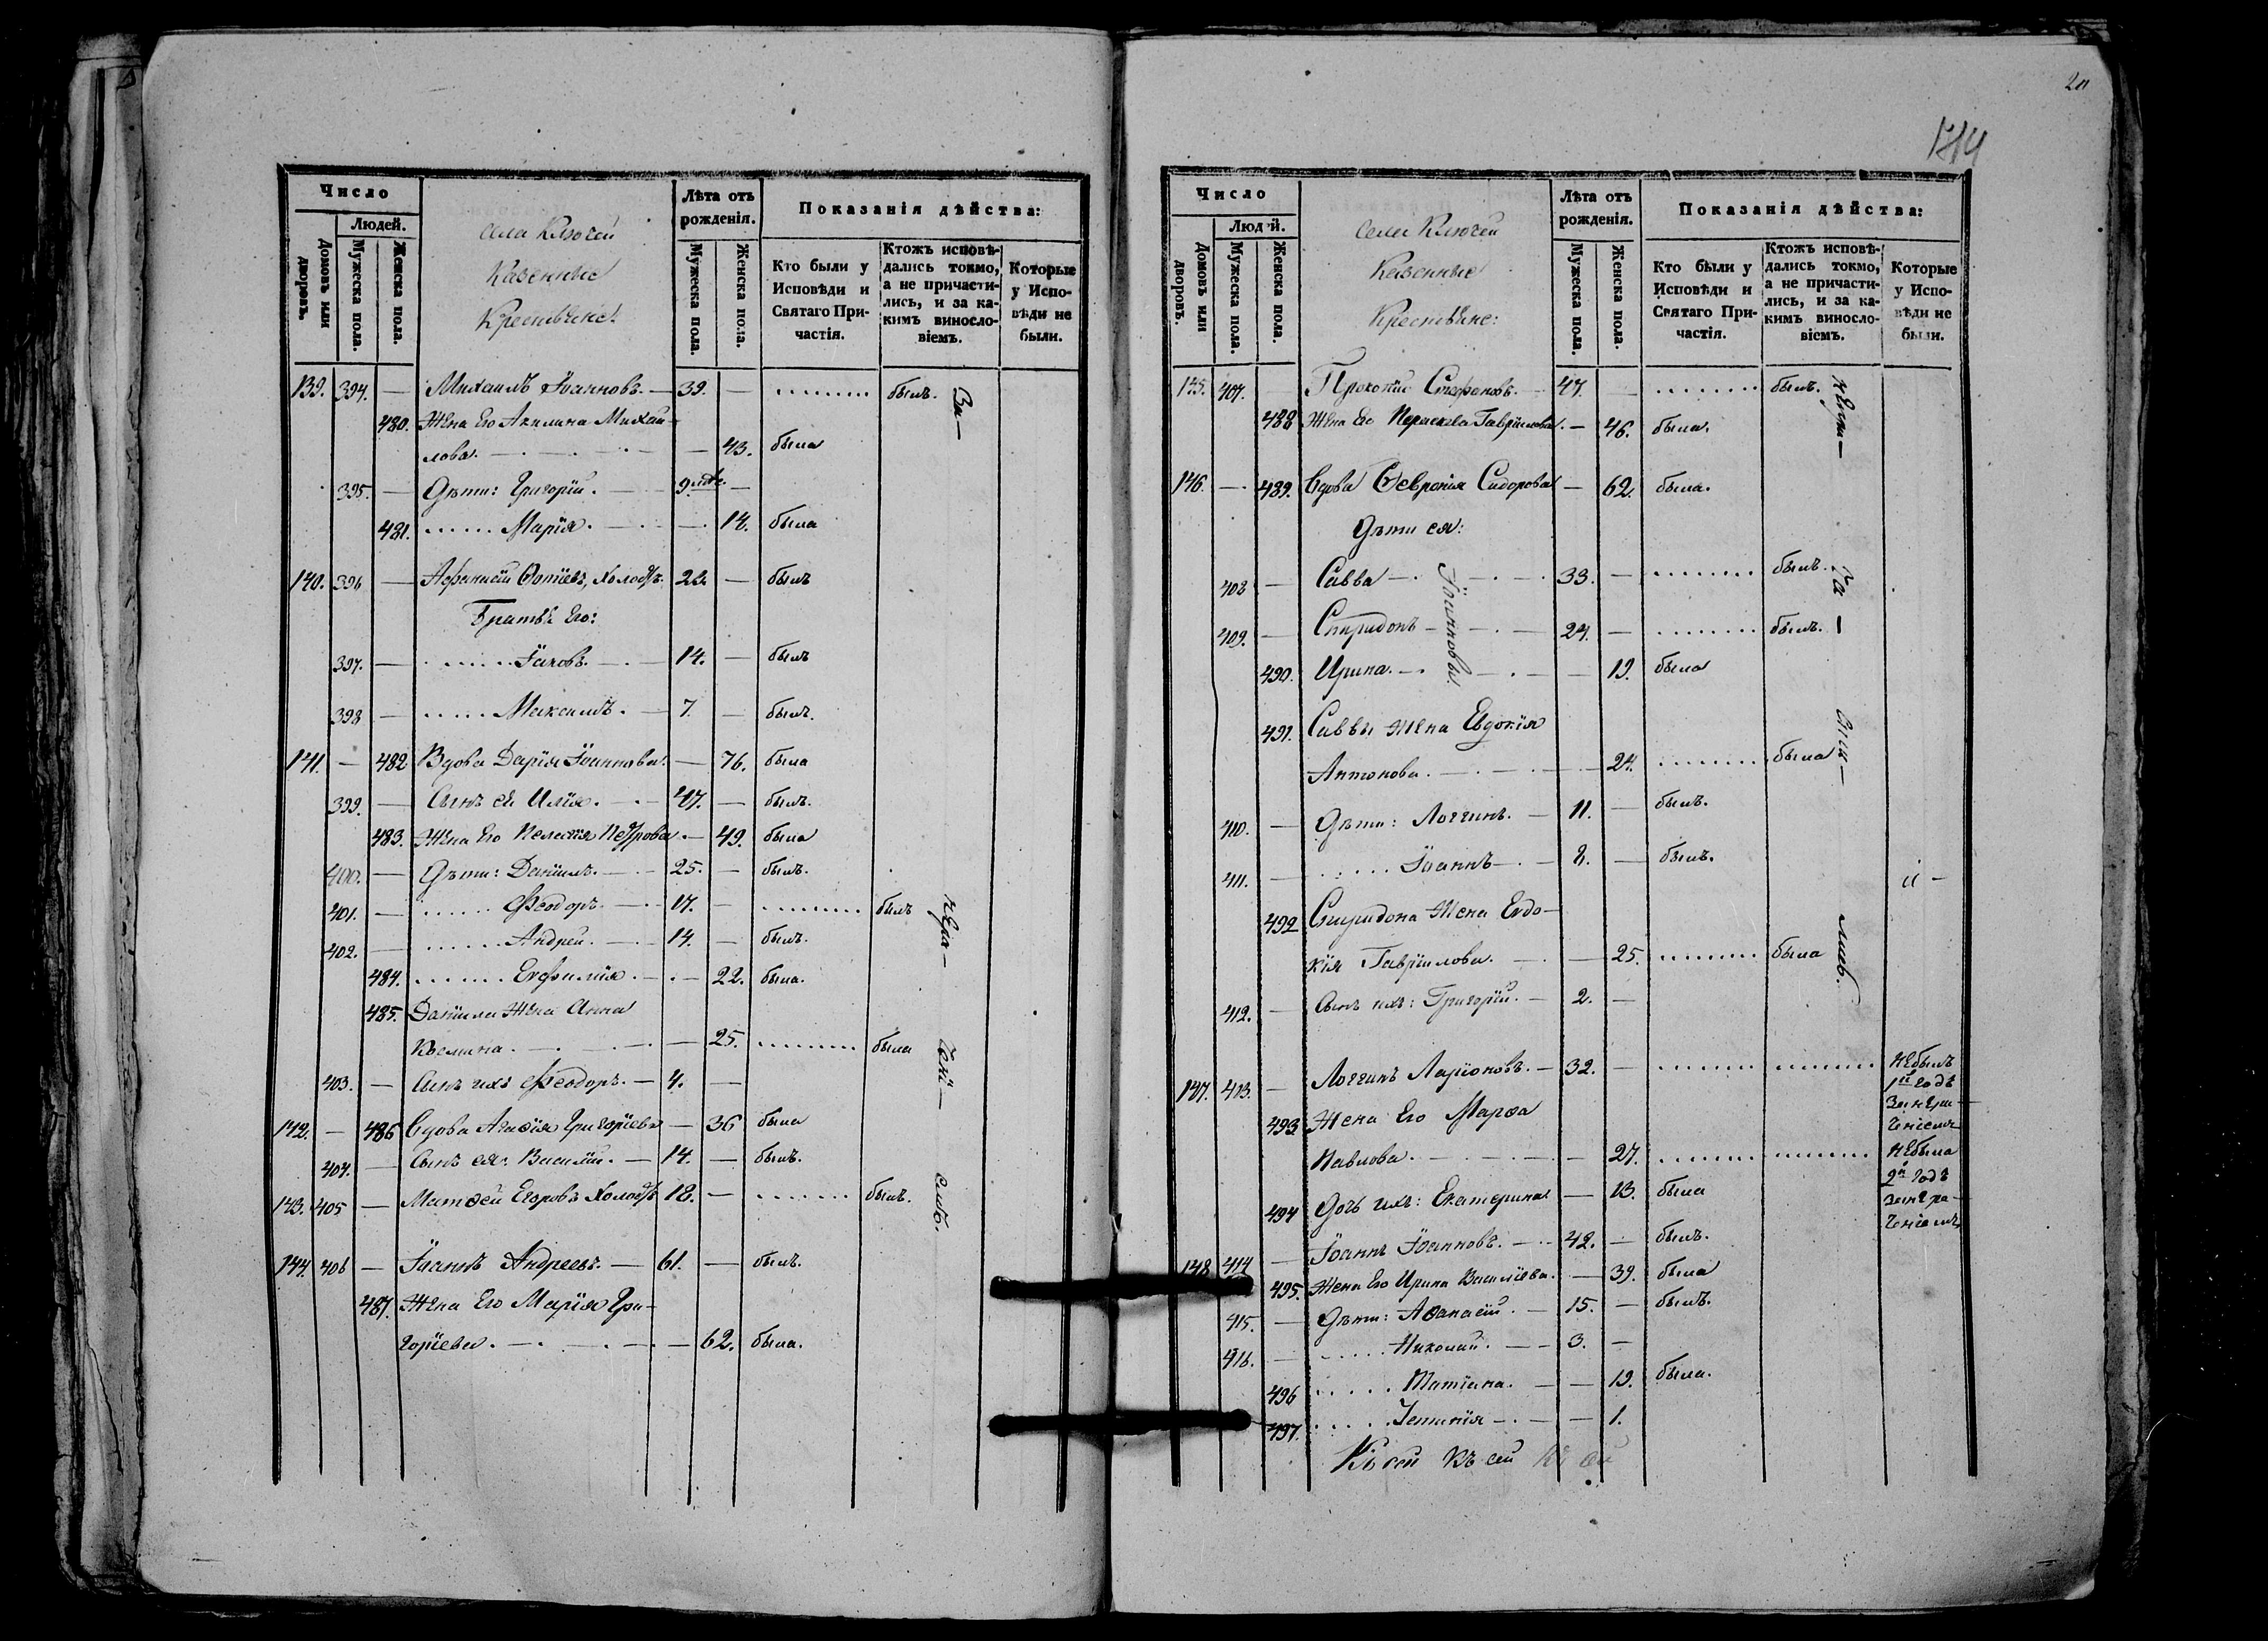 Число
Людей.
Домовъ или дворовъ.
Мужеска пола.
Женска пола.
села Ключей
Казенные
Крестьяне:
Лѣта отъ рожденія.
Мужеска пола.
Женска пола.
Показанія дѣйства:
Кто были у Исповѣди и Святаго Причастія.
Ктожъ исповѣдались токмо, а не причастились, и за какимъ винословіемъ.
Которые у Исповѣди не были.
139. 394. — Михаилъ Іоанновъ. — 39. — ......... былъ.
За—
480. Жена Его Акилина Михаи-
лова. — — 43. была
395. — Дѣти: Григорій. — 9. —
481. ...... Марія. — — 14. была
140. 396 — Афанасій Фотіевъ, холостъ. 22. — былъ
Братья Его:
397. — ...... Іаковъ. — 14. — былъ
398 — ..... Максимъ. — 7. — былъ.
141. — 482 Вдова Дарія Іоаннова. — 76. была
399. — Сынъ ея Илія. — 47. — былъ.
483. Жена Его Пелагія Петрова. — 49. была
400. — Дѣти: Даніилъ. — 25. — былъ.
401. — ...... Феодоръ. — 17. — ......... былъ
нера—
402. — ...... Андрей. — 14. — былъ.
484. ....... Евфимія. — — 22. была.
485. Даніила Жена Анна
Козмина. — — 25. ......... была
чені—
403. — Сынъ ихъ Феодоръ. — 4. —
142. — 486 Вдова Агафія Григоріева — 36 была
404. — Сынъ ея: Василій. — 14. — былъ.
143. 405 — Матѳей Егоровъ холостъ 18. — ........ былъ.
емъ.
144. 406 — Іоаннъ Андреевъ. — 61. — былъ.
487. Жена Его Марія Гри-
горіева. — — 62. была.
20
Число
Людей.
Домовъ или дворовъ.
Мужеска пола.
Женска пола.
Села Ключей
Казенные
Крестьяне:
Лѣта отъ рожденія.
Мужеска пола.
Женска пола.
Показанія дѣйства:
Кто были у Исповѣди и Святаго Причастія.
Ктожъ исповѣдались токмо, а не причастились, и за какимъ винословіемъ.
Которые у Исповѣди не были.
145. 407. — Прокопій Стефановъ. — 47. — ........ былъ.
488 Жена Его Параскева Гавріилова. — 46. была.
146. — 489. Вдова Февронія Сидорова — 62. была.
Дѣти ея:
408 — Савва — 33. — ........ былъ.
Іоанновы.
409. — Спиридонъ — 24. — ........ былъ.
490. Ирина. — — 19. была
491. Саввы Жена Евдокія
Антонова. — — 24. ........ была
410. — Дѣти: Логгинъ. — 11. — былъ.
411. — ..... Іоаннъ — 8. — былъ.
492 Спиридона Жена Евдо-
кія Гавріилова. — — 25. ........ была
412. — Сынъ ихъ: Григорій. — 2. —
147. 413. — Логгинъ Ларіоновъ. — 32. — ........ ........ Не былъ
1й годъ
за нера-
ченіемъ
493. Жена Его Марѳа
Павлова. — — 27. ........ ........ Не была
2й годъ
за нера-
ченіемъ
494 Дочь ихъ: Екатерина — 13. была
148 414 — Іоаннъ Іоанновъ. — 42. — былъ.
495. Жена Его Ирина Василіева. — 39. была
415. — Дѣти: Аѳанасій. — 15. — былъ.
416. — ..... Николай. — 3. —
496 ..... Татіана. — — 19. была.
497. ..... — — 1.
Къ сей къ сей къ сей